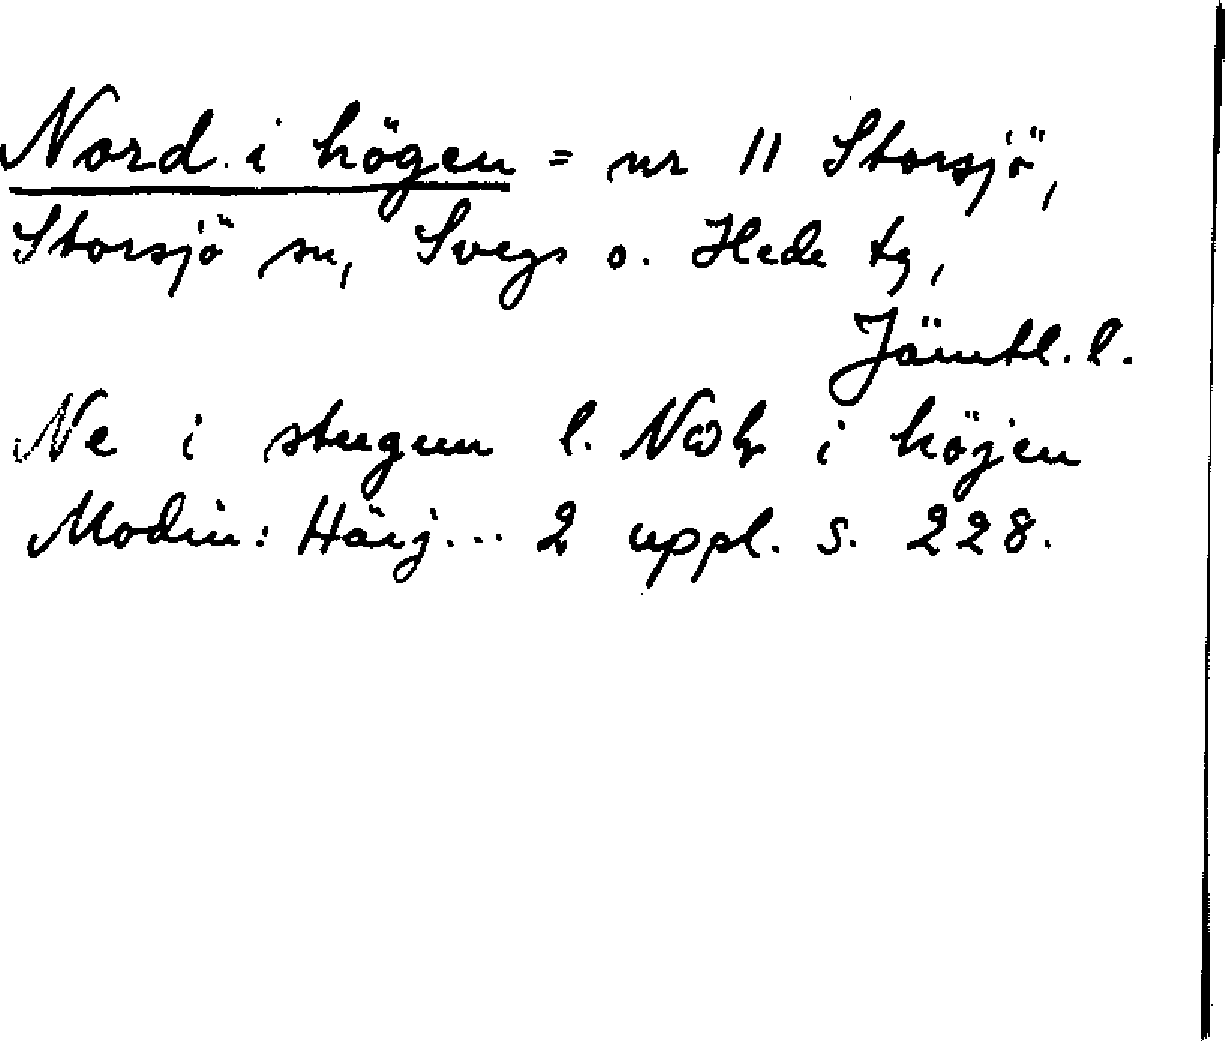 Nord i högen = nr 11 Storsjö,
Storsjö sn, Svegs o. Hede tg,
Jämtl. l.
Ne i stugun l. i höjen
Modin: Härj... 2 uppl. s. 228.